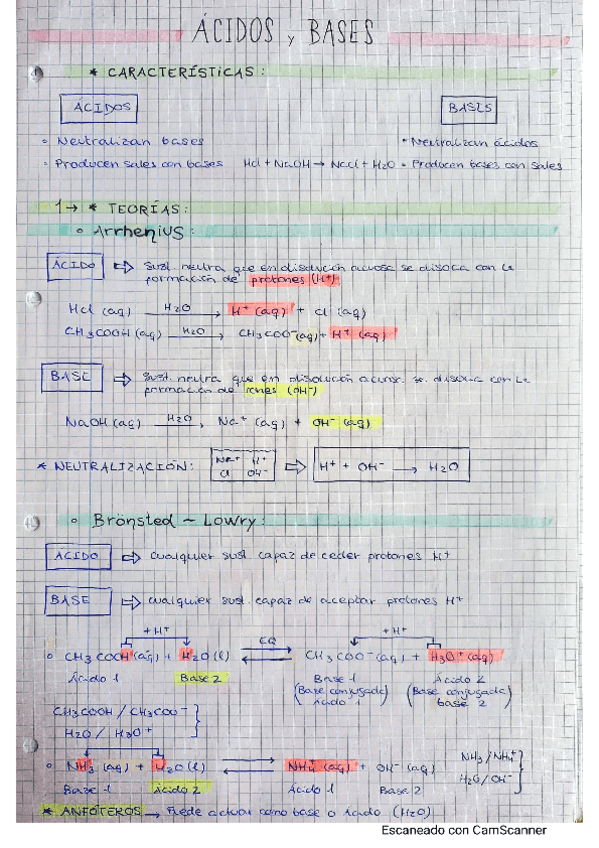 ÁCIDOS y BASES
* CARACTERÍSTICAS:
ÁCIDOS BASES
◦ Neutralizan bases • Neutralizan ácidos
◦ Producen sales con bases Hcl + NaOH → Nacl + H2O • Producen bases con sales
1→ * TEORÍAS:
◦ Arrhenius:
ÁCIDO ⇨ Sust. neutra que en disolución acuosa se disocia con la
formación de protones (H+)
Hcl (aq) —H2O→ H+ (aq) + Cl (aq)
CH3COOH (aq) —H2O→ CH3COO- (aq) + H+ (aq)
BASE ⇨ Sust. neutra que en disolución acuosa se disocia con la
formación de iones (OH-)
NaOH (aq) —H2O→ Na+ (aq) + OH- (aq)
* NEUTRALIZACIÓN: Na+ H+ ⇨ H+ + OH- → H2O
Cl OH-
◦ Brönsted ~ Lowry:
ÁCIDO ⇨ cualquier sust. capaz de ceder protones H+
BASE ⇨ cualquier sust. capaz de aceptar protones H+
+H+ EQ +H+
◦ CH3COOH (aq) + H2O (l) ⇄ CH3COO- (aq) + H3O+ (aq)
Ácido 1 Base 2 Base 1 Ácido 2
(Base conjugada (Base conjugada
Ácido 1) base 2)
CH3COOH / CH3COO- }
H2O / H3O+ }
◦ NH3 (aq) + H2O (l) ⇄ NH4+ (aq) + OH- (aq) NH3/NH4+ }
H2O/OH- }
Base 1 Ácido 2 Ácido 1 Base 2
* ANFÓTEROS → Puede actuar como base o ácido (H2O)
Escaneado con CamScanner